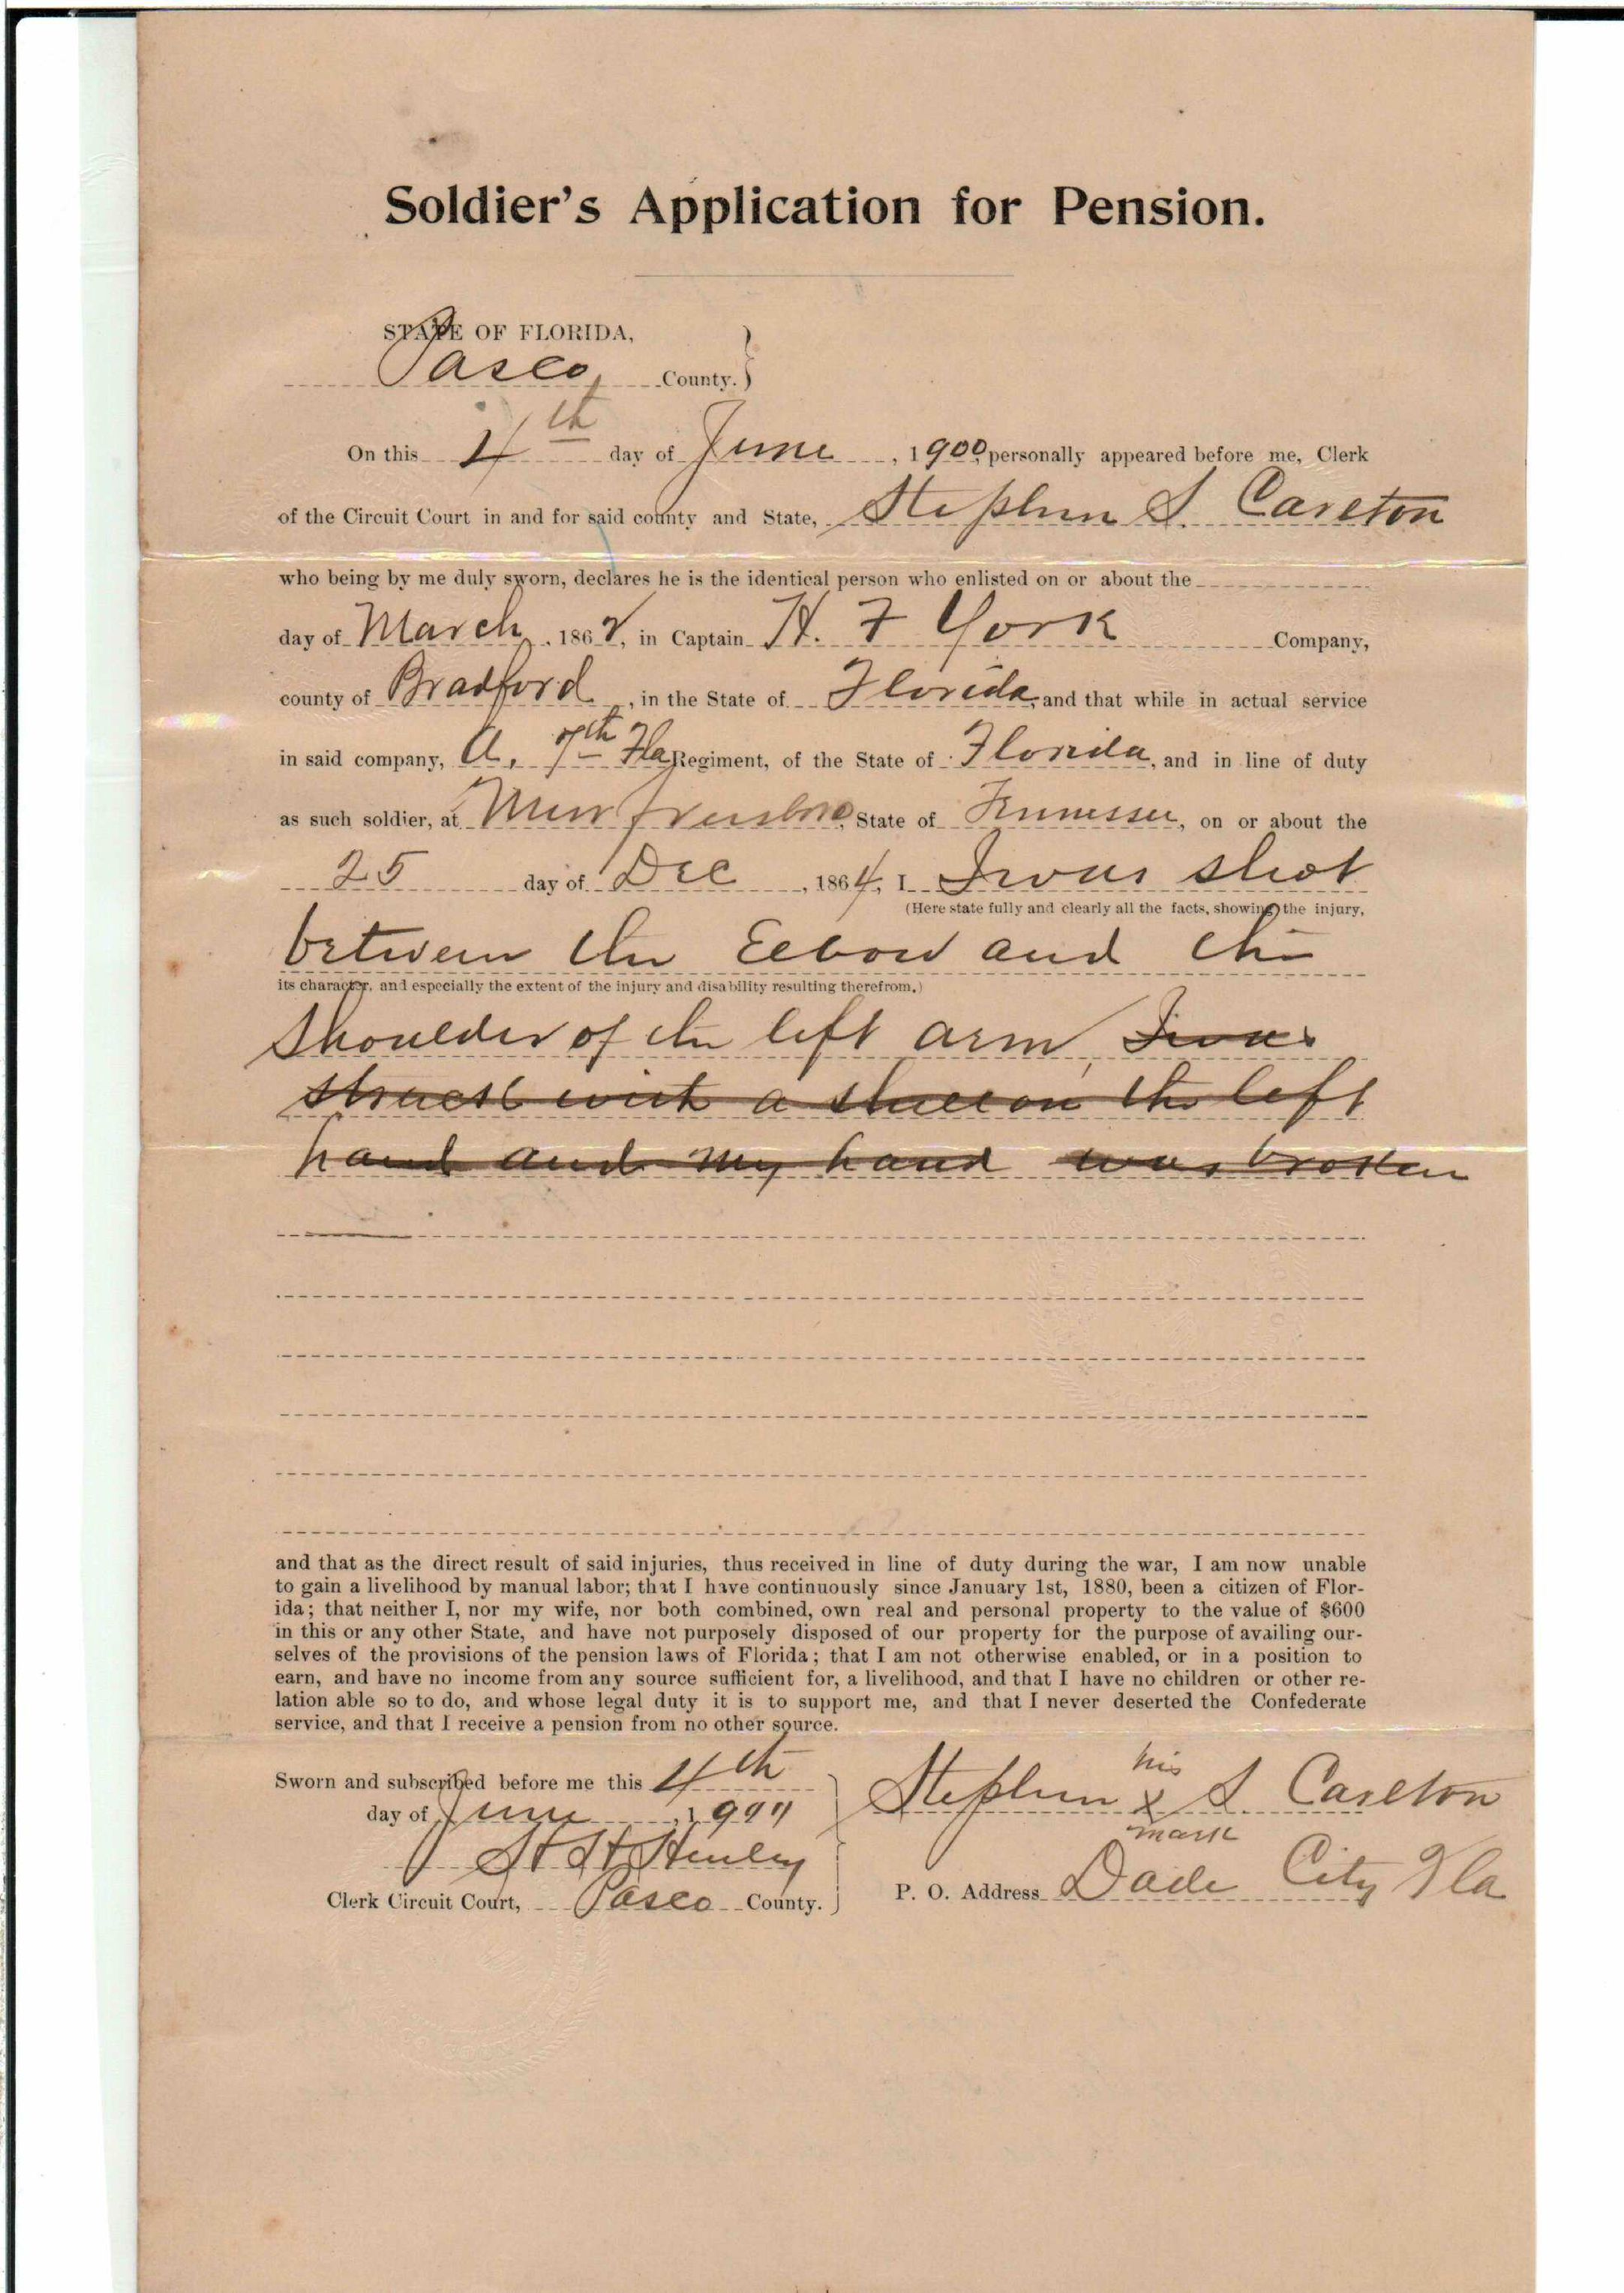 Soldier's Application for Pension.
STATE OF FLORIDA,
Pasco County.
On this 4th day of June, 1900, personally appeared before me, Clerk
of the Circuit Court in and for said county and State, Stephen S. Carlton
who being by me duly sworn, declares he is the identical person who enlisted on or about the
day of March, 1862, in Captain H. F York Company,
county of Bradford, in the State of Florida, and that while in actual service
in said company, A, 7th Fla Regiment, of the State of Florida, and in line of duty
as such soldier, at Murfreesboro, State of Tennessee, on or about the
25 day of Dec, 1864, I I was shot
(Here state fully and clearly all the facts, showing the injury,
between the Elbow and the
its character, and especially the extent of the injury and disability resulting therefrom.)
Shoulder of the left arm, I was
struck with a shell on the left
hand and my hand was broken
and that as the direct result of said injuries, thus received in line of duty during the war, I am now unable
to gain a livelihood by manual labor; that I have continuously since January 1st, 1880, been a citizen of Flor-
ida; that neither I, nor my wife, nor both combined, own real and personal property to the value of $600
in this or any other State, and have not purposely disposed of our property for the purpose of availing our-
selves of the provisions of the pension laws of Florida; that I am not otherwise enabled, or in a position to
earn, and have no income from any source sufficient for, a livelihood, and that I have no children or other re-
lation able so to do, and whose legal duty it is to support me, and that I never deserted the Confederate
service, and that I receive a pension from no other source.
Sworn and subscribed before me this 4th
day of June, 1900
Henley
Clerk Circuit Court, Pasco County.
his
Stephen x S. Carlton
mark
P. O. Address Dade City Fla